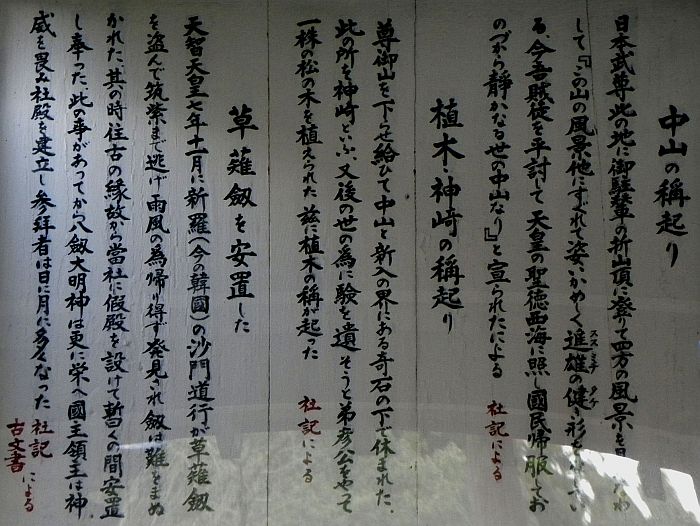 中山の稱起り
日本武尊此の地に御駐輦の折山頂に登りて四方の風景を
して『この山の風景他にすぐれて姿いかめしく進雄の健き形を
る、今吾賊徒を平討して天皇の聖徳西海に照し國民帰服してお
のづから靜かなる世の中山なり』と宣られたによる 社記による
植木、神崎の稱起り
尊御山を下らせ給ひて中山と新入の界にある奇石の下で休まれた、
此の所を神崎といふ、又後の世の為に験を遺そうと弟彦公をやって
一株の松の木を植えられた 茲に植木の稱が起った 社記による
草薙劔を安置した
天智天皇七年十一月に新羅(今の韓國)の沙門道行が草薙劔
を盗んで筑紫まで逃げ雨風の為帰り得ず発見され劔は難をまぬ
かれた、其の時住古の縁故から當社に假殿を設けて暫くの間安置
し奉った、此の事があってから八劔大明神は更に栄へ國主領主は神
威を畏み社殿を建立し参拜者は日に月に多くなった 社記
古文書による